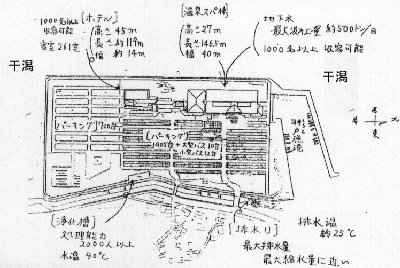 1000名以上
収容可能
客室261室
[ホテル]
高さ45m
長さ約119m
幅 約14m
[温泉スパ棟]
高さ27m
長さ146.5m
幅 40m
地下水
最大汲上量 約500トン/日
1000名以上 収容可能
干潟
干潟
[パーキング]
[パーキング]
1405台+大型バス10台
小型バス12台
[浄化槽]
処理能力
2000人以上
水温40℃
[排水口]
最大排水量
最大給水量に近い
排水温
約25℃
西
東